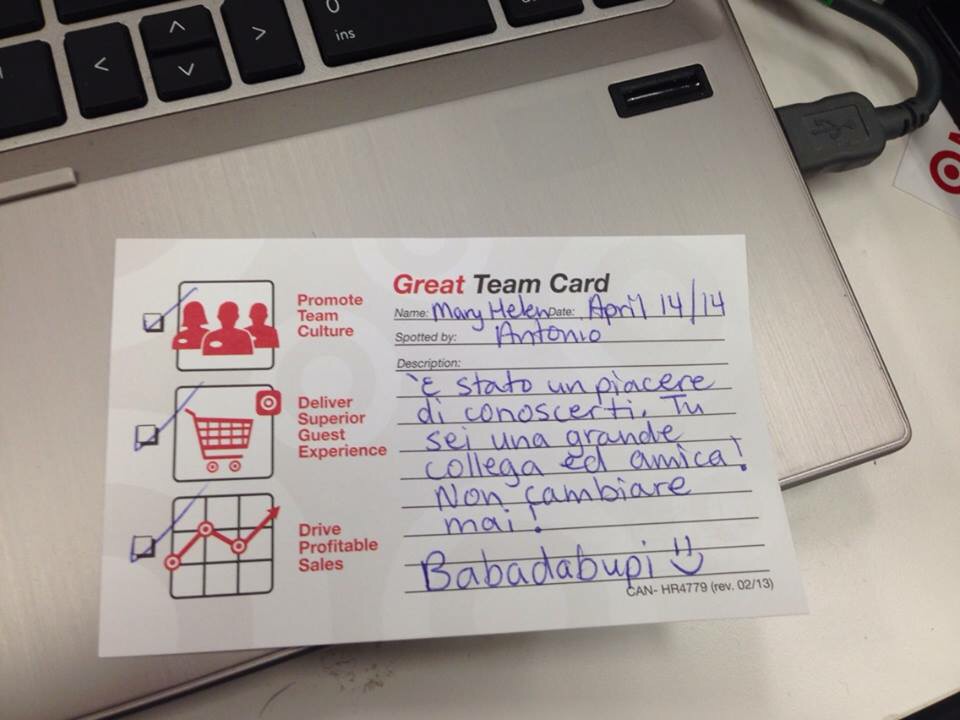 ins
Great Team Card
Name: Mary Helen Date: April 14/14
Spotted by: Antonio
Description:
È stato un piacere
di conoscerti. Tu
sei una grande
collega ed amica!
Non cambiare
mai!
Babadabupi
CAN- HR4779 (rev. 02/13)
Promote
Team
Culture
Deliver
Superior
Guest
Experience
Drive
Profitable
Sales